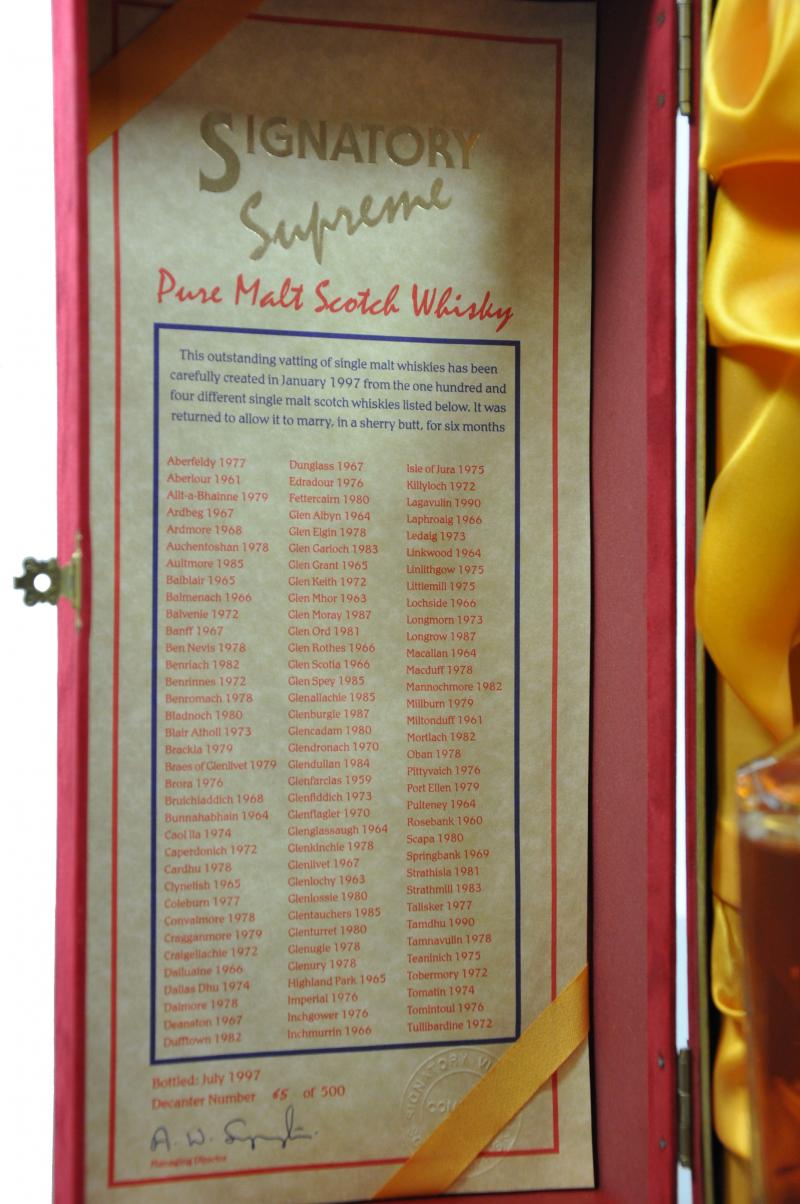 SIGNATORY
Supreme
Pure Malt Scotch Whisky
This outstanding vatting of single malt whiskies has been
carefully created in January 1997 from the one hundred and
four different single malt scotch whiskies listed below. It was
returned to allow it to marry, in a sherry butt, for six months
Aberfeldy 1977
Aberlour 1961
Allt-a-Bhainne 1979
Ardbeg 1967
Ardmore 1968
Auchentoshan 1978
Aultmore 1985
Balblair 1965
Balmenach 1966
Balvenie 1972
Banff 1967
Ben Nevis 1978
Benriach 1982
Benrinnes 1972
Benromach 1978
Bladnoch 1980
Blair Atholl 1973
Brackla 1979
Braes of Glenlivet 1979
Brora 1976
Bruichladdich 1968
Bunnahabhain 1964
Caol Ila 1974
Caperdonich 1972
Cardhu 1978
Clynelish 1965
Coleburn 1977
Convalmore 1978
Cragganmore 1979
Craigellachie 1972
Dailuaine 1966
Dallas Dhu 1974
Dalmore 1978
Deanston 1967
Dufftown 1982
Dunglass 1967
Edradour 1976
Fettercairn 1980
Glen Albyn 1964
Glen Elgin 1978
Glen Garioch 1983
Glen Grant 1965
Glen Keith 1972
Glen Mhor 1963
Glen Moray 1987
Glen Ord 1981
Glen Rothes 1966
Glen Scotia 1966
Glen Spey 1985
Glenallachie 1985
Glenburgie 1987
Glencadam 1980
Glendronach 1970
Glendullan 1984
Glenfarclas 1959
Glenfiddich 1973
Glenflagler 1970
Glenglassaugh 1964
Glenkinchie 1978
Glenlivet 1967
Glenlochy 1963
Glenlossie 1980
Glentauchers 1985
Glenturret 1980
Glenugie 1978
Glenury 1978
Highland Park 1965
Imperial 1976
Inchgower 1976
Inchmurrin 1966
Isle of Jura 1975
Killyloch 1972
Lagavulin 1990
Laphroaig 1966
Ledaig 1973
Linkwood 1964
Linlithgow 1975
Littlemill 1975
Lochside 1966
Longmorn 1973
Longrow 1987
Macallan 1964
Macduff 1978
Mannochmore 1982
Millburn 1979
Miltonduff 1961
Mortlach 1982
Oban 1978
Pittyvaich 1976
Port Ellen 1979
Pulteney 1964
Rosebank 1960
Scapa 1980
Springbank 1969
Strathisla 1981
Strathmill 1983
Talisker 1977
Tamdhu 1990
Tamnavulin 1978
Teaninich 1975
Tobermory 1972
Tomatin 1974
Tomintoul 1976
Tullibardine 1972
Bottled: July 1997
Decanter Number 65 of 500
Managing Director
SIGNATORY